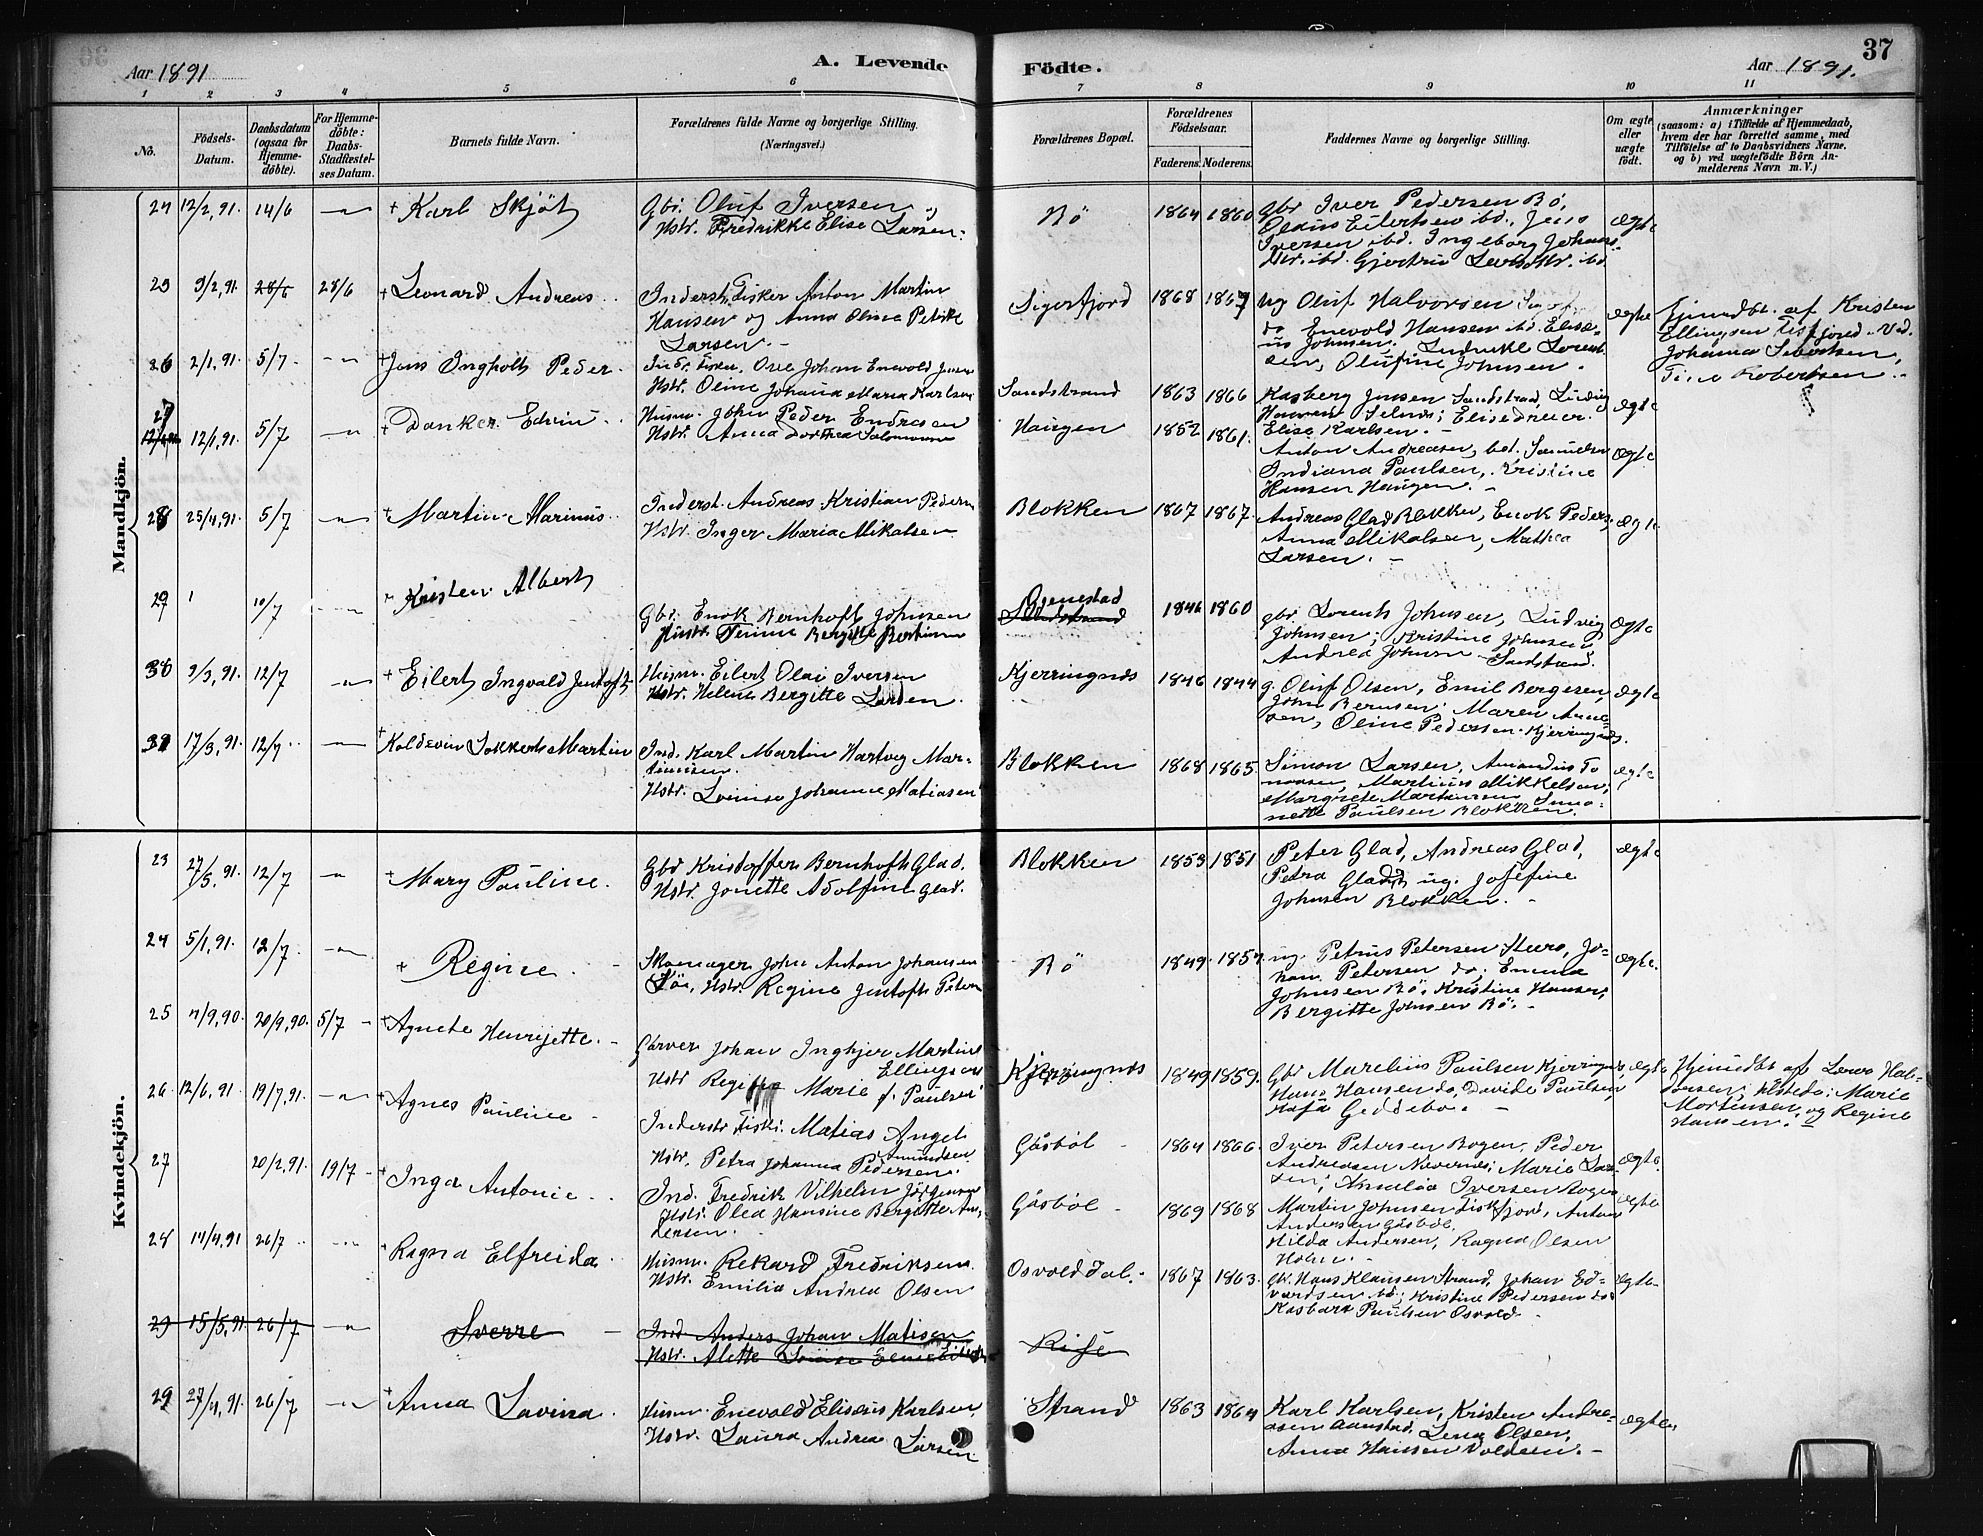 Aar 1891
A. Levende
Födte.
37
Aar 1891.
1 2 3 4 5 6 7 8 9 10 11
No.
Födsels-
Datum.
Daabsdatum
(ogsaa for
Hjemme-
döbte).
For Hjemme-
döbte:
Daabs-
Stadfæstel-
ses Datum.
Barnets fulde Navn.
Forældrenes fulde Navne og borgerlige Stilling.
(Næringsvei.)
Forældrenes Bopæl.
Forældrenes
Födselsaar.
Faderens. Moderens.
Faddernes Navne og borgerlige Stilling.
Om ægte
eller
uægte
født.
Anmærkninger
(saasom: a) i Tilfælde af Hjemmedaab,
hvem der har forrettet samme, med
Tilföielse af to Daabsvidners Navne,
og b) ved uægtefödte Börn An-
melderens Navn m.V.)
Mandkjön.
24 12/2,91. 14/6 Karl Skjöt
Gbr. Oluf Iversen
Hstr. Fredrikke Elise Larsen.
Bö 1864 1860
Gbr Iver Pedersen Bö,
Olaus Eilertsen ibd., Jens
Iversen ibd. Ingeborg Johans
ægte
25 9/2,91. 28/6 28/6 Leonard Andreas
Inderst. Fisker Anton Martin
Hansen og Anna Oline Petrike
Larsen.
Sigerfjord 1868 1867
ug Oluf Halvorsen
do Enevold Hansen ibd. Elisæ-
us Johnsen. Ludvikke Lorent
sen, Olufine Johnsen.
ægte
Hjemdbt. af Kristen
Ellingsen Fiskfjord. Vid.
Johanna Sivertsen,
Robertsen.
26 2/1,91. 5/7 Jens Ingholt Peder
Ind. Fisker, Ove Johan Enevold Jensen
Hstr. Oline Johanna Maria Karlsen
Sandstrand 1863 1866
Kasberg Jensen Sandstrand, Ludvig
Hansen Selnes; Elise Dreier.
Elise Karlsen.
ægte
27 12/1,91. 5/7 Danker Edvin
Husm. John Peder Endresen
Hstr. Anna Dorthea Salomonsen
Haugen 1852 1861.
Anton Andreasen, bet. Samuelsen
Indiana Paulsen, Kristine
Hansen Haugen.
ægte
28 25/4,91. 5/7 Martin Marinus
Inderst. Andreas Kristian Pedersen
Hstr. Inger Maria Mikalsen
Blokken 1867 1867.
Andreas Glad Blokken, Enok Peders,
Anna Mikalsen, Mathea
Larsen.
ægte
29 10/7 Kristen Albert
Gbr. Enok Bernhoft Johnsen
Hustr. Tennine Bergitte Bertinsen
Sandstrand 1846 1860
gbr. Lorents Johnsen, Ludvig
Johnsen; Kristine Johnsen
Andrea Johnsen Sandstrand.
ægte
30 9/3,91. 12/7 Eilert Ingvald Jentoft
Husm. Eilert Olai Iversen
Hstr. Helene Bergitte Larsen.
Kjerringnes 1846 1844
g. Oluf Olsen, Emil Bergesen,
John Bernsen. Maren Arne-
sen, Oline Pedersen. Kjerringnes.
ægte
31 17/3,91. 12/7 Koldevin Martin
Ind. Karl Martin Hartvig Mar-
tinusen.
Hstr. Lovinse Johanne Matiasen
Blokken 1868 1865.
Simon Larsen, Amandus To
masen, Martinus Mikkelsen,
Margrete Martinusen Simo-
nette Paulsen Blokken.
ægte
Kvindekjön.
23 27/5,91. 12/7 Mary Pauline.
Gbr Kristoffer Bernhoft Glad.
Hstr. Jonette Adolfine Glad.
Blokken 1853 1851
Peter Glad, Andreas Glad,
Petra Glad, ug. Josefine
Johnsen Blokken.
ægte
24 5/1,91. 12/7. Regine
Skomager John Anton Johansen
Hstr. Regine Jentoft Petersen
Bö 1849. 1857.
ug. Petrus Petersen Steiro, Jo-
han Petersen do; Emma
Johnsen Bö. Kristine Hansen,
Bergitte Johnsen Bö.
ægte.
25 4/9,90. 20/9,90. 5/7 Agnete Henrijette.
Garver Johan Inghjer Martinus
Ellingsen
Hstr Marie f. Paulsen
Kjerringnes 1849 1859.
Gbr Marelius Paulsen Kjerringnes,
Hans Hansen do, Davide Paulsen,
Geddebo.
ægte
Hjemdbt af Lars Hal-
vorsen, tilstede: Marie
Mortensen, og Regine
Hansen.
26. 12/6,91. 19/7,91. Agnes Pauline
Inderst. Fisk. Matias Angel
Amundsen
Hstr. Petra Johanna Pedersen.
Gåsböl 1864 1866.
Iver Petersen Bogen, Peder
Andreasen Nævernes; Marie Lar-
sen; Amalia Iversen Bogen
ægte.
27 20/2,91. 19/7 Inga Antonie
Ind. Fredrik Vilhelm Jörgensen
Hstr. Olea Hansine Bergitte An-
dersen.
Gåsböl 1869 1868
Martin Johnsen Fiskfjord, Anton
Andersen Gåsböl,
Hilda Andersen, Ragna Olsen
Holm.
ægte
28 14/4,91 26/7 Ragna Elfreida
Husm. Rekard Fredriksen.
Hstr. Emilia Andrea Olsen
Osvolddal. 1867 1863.
gk. Hans Klausen Strand, Johan Ed-
vardsen bd; Kristine Pedersen do
Kasbara Paulsen Osvold
ægte
29 15/5,91 26/7 Sverre
Ind Anders Johan Matisen
Hstr. Alette Lovinse
Risö
29 27/4,91. 26/7 Anna Lavina.
Husm. Enevold Elisæus Karlsen,
Hstr. Laura Andrea Larsen
Strand 1863 1864
Karl Karlsen, Kristen Andre-
asen Aanstad, Lena Olsen,
Anna Hansen Voldsen.
ægte.